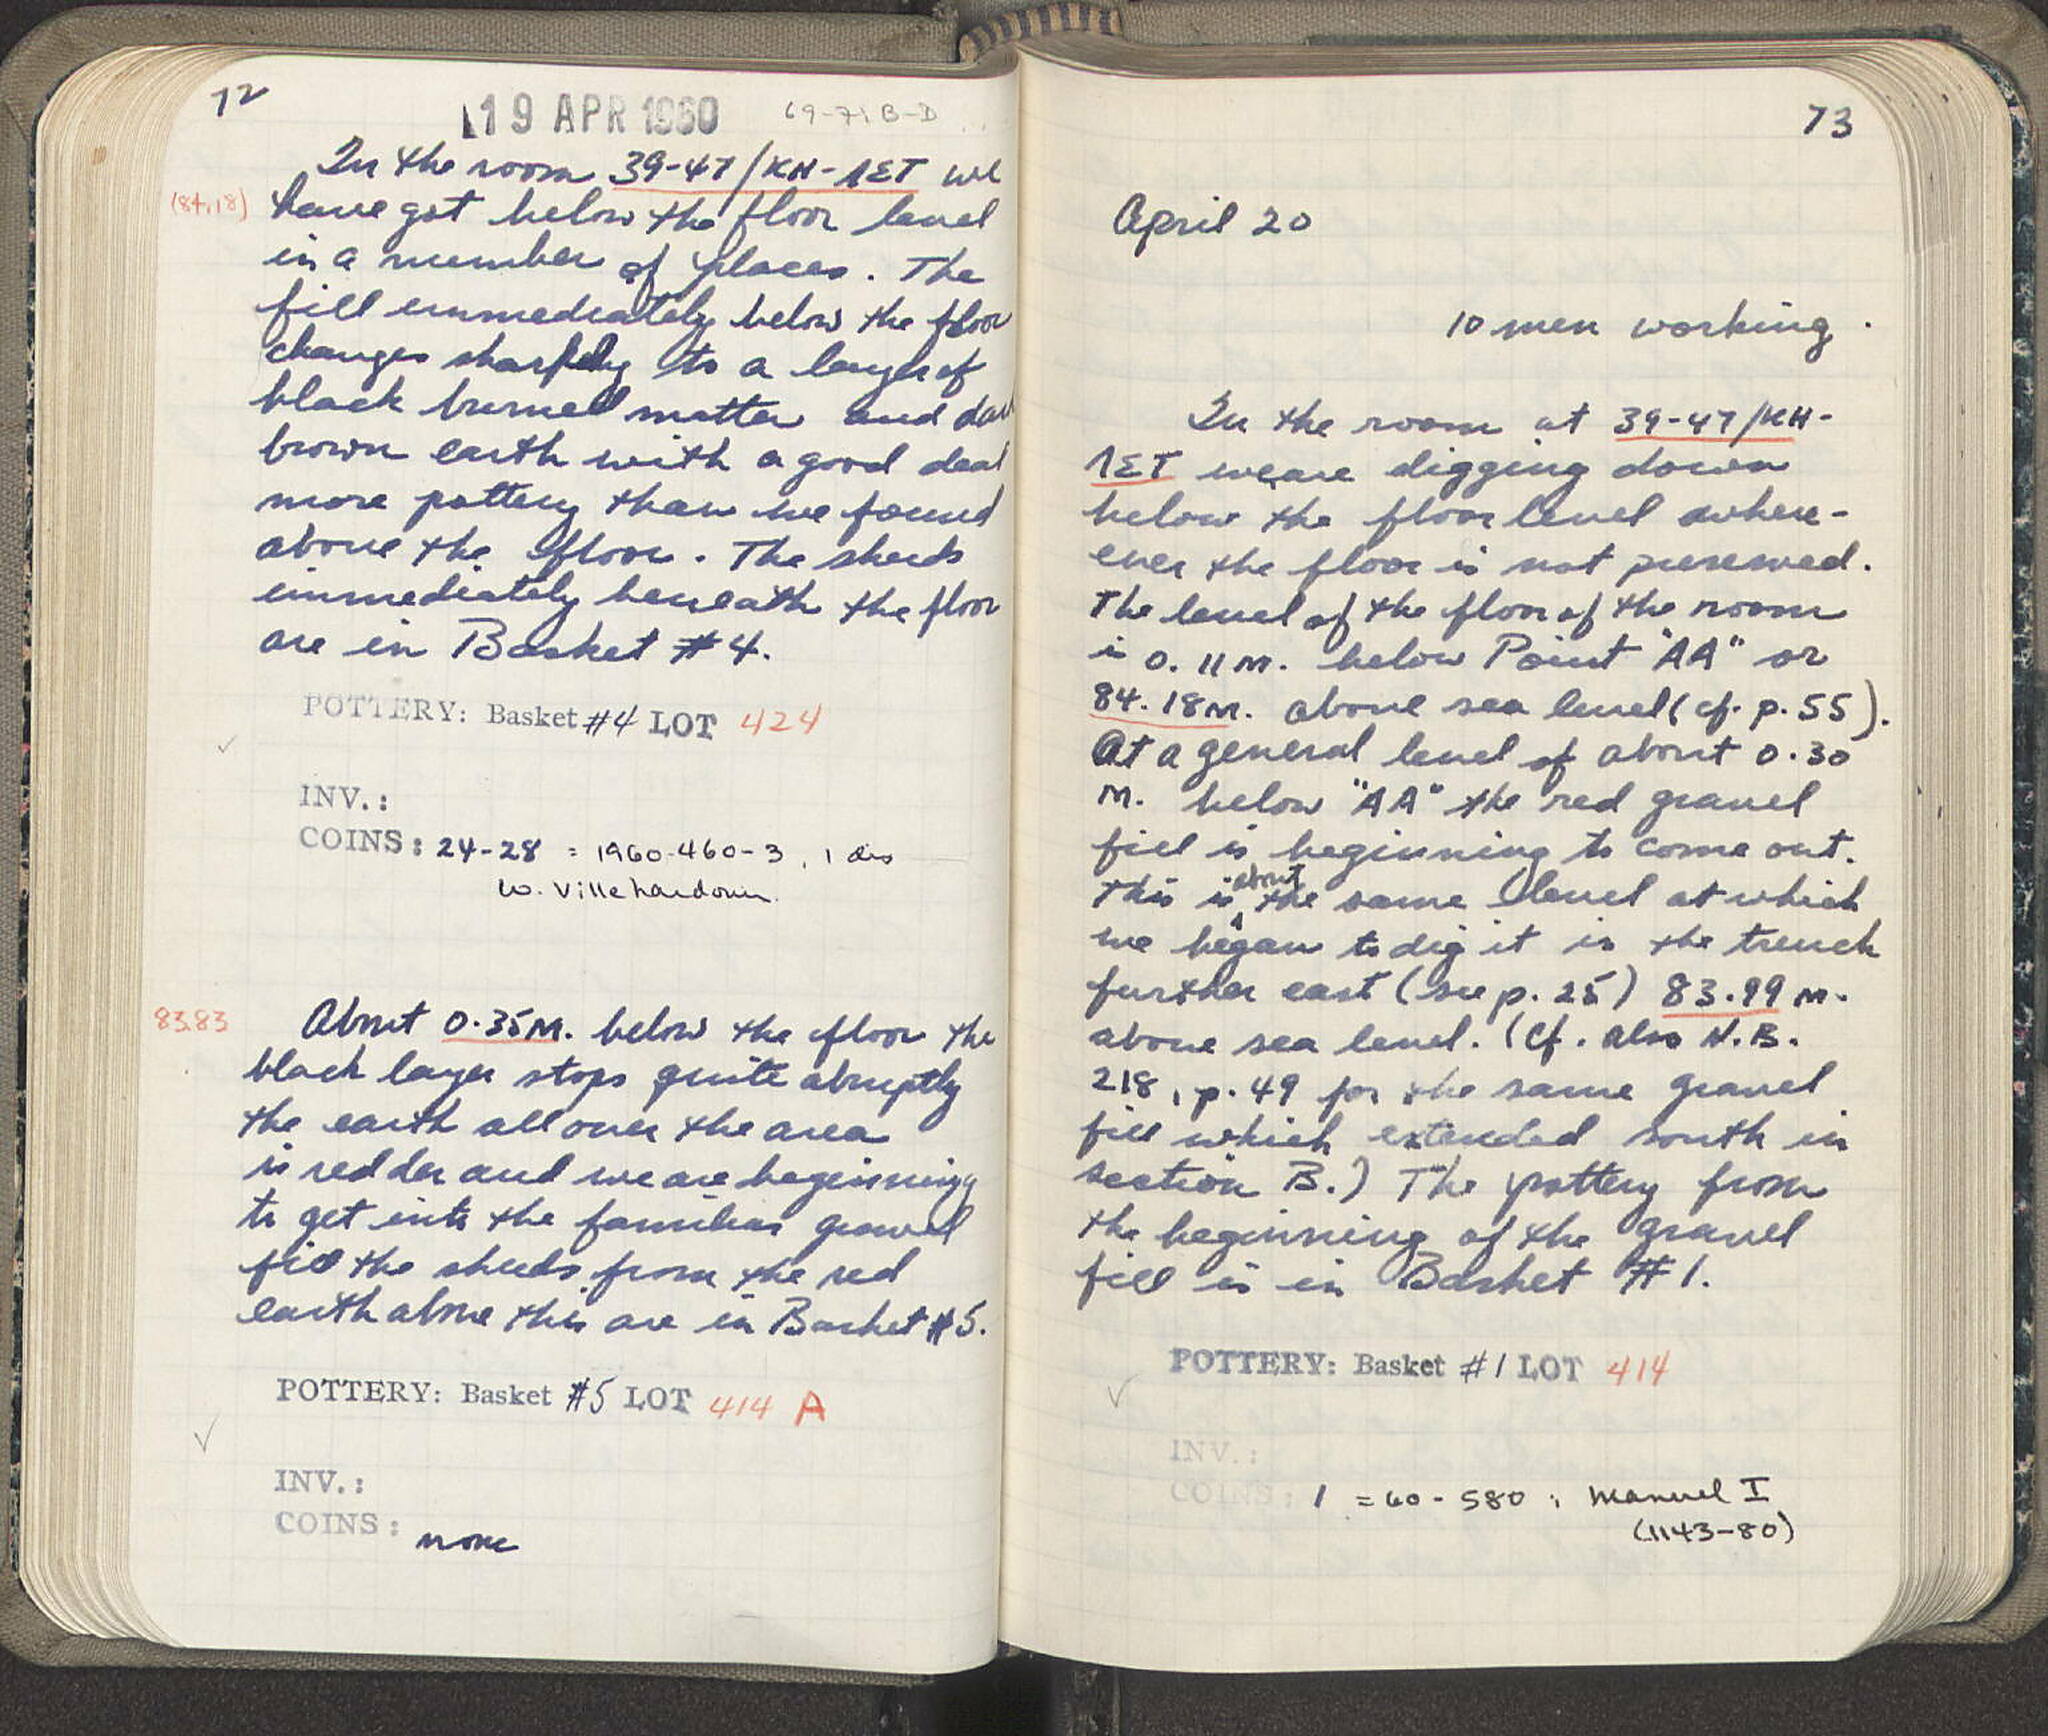 72
19 APR 1960 69-71 B-D
In the room 39-47/KH-ΛΣΤ we
(84.18) have got below the floor level
in a number of places. The
fill immediately below the floor
changes sharply to a layer of
black burned matter and dark
brown earth with a good deal
more pottery than we found
above the floor. The sherds
immediately beneath the floor
are in Basket #4.
POTTERY: Basket #4 LOT 424
INV.:
COINS: 24-28 = 1960-460-3, 1 dis
W. Villehardouin
83.83 About 0.35M. below the floor the
black layer stops quite abruptly
the earth all over the area
is redder and we are beginning
to get into the familiar gravel
fill the sherds from the red
earth above this are in Basket #5.
POTTERY: Basket #5 LOT 414 A
INV.:
COINS: none
73
April 20
10 men working.
In the room at 39-47/KH-
ΛΣΤ we are digging down
below the floor level where-
ever the floor is not preserved.
The level of the floor of the room
is 0.11 M. below Point "AA" or
84.18M. above sea level (cf. p.55).
At a general level of about 0.30
M. below "AA" the red gravel
fill is beginning to come out.
This is about the same level at which
we began to dig it in the trench
further east (see p. 25) 83.99 M.
above sea level. (Cf. also N.B.
218, p. 49 for the same gravel
fill which extended south in
section B.) The pottery from
the beginning of the gravel
fill is in Basket #1.
POTTERY: Basket #1 LOT 414
INV.:
COINS: 1 = 60-580: Manuel I
(1143-80)